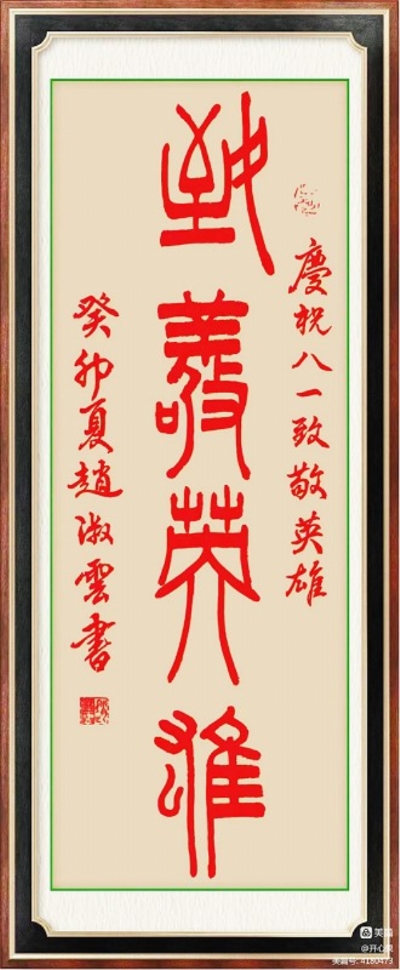 慶祝八一致敬英雄
致敬英雄
癸卯夏趙淑雲書
美篇
@开心果
美篇号: 4180473